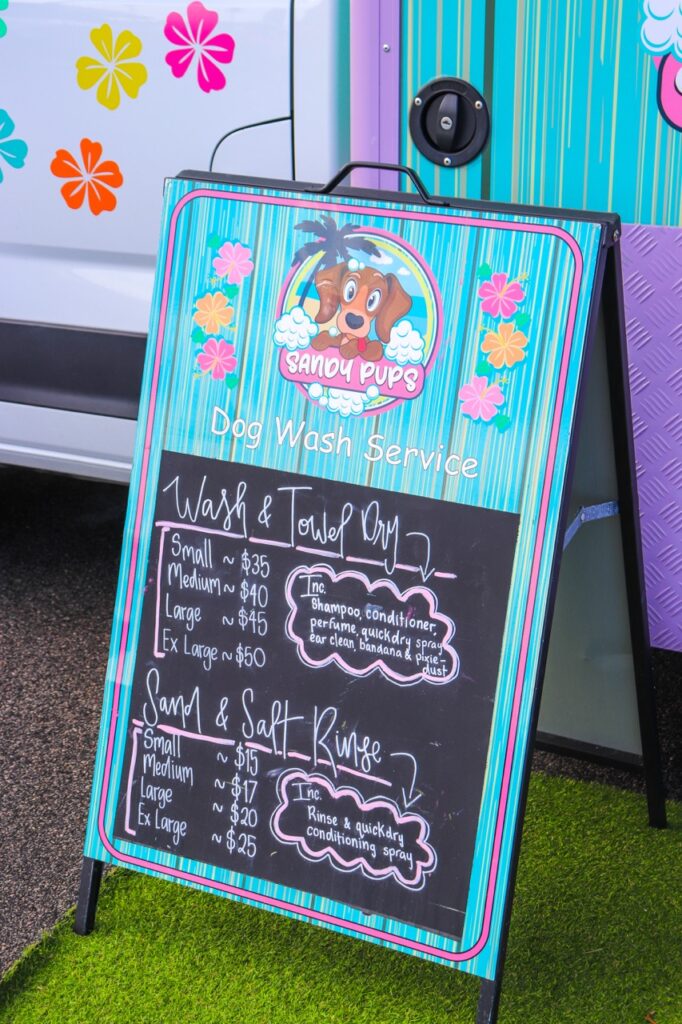 SANDY PUPS
Dog Wash Service
Wash & Towel Dry
Small ~ $35
Medium ~ $40
Large ~ $45
Ex Large ~ $50
Inc.
Shampoo, conditioner,
perfume, quickdry spray
ear clean, bandana & pixie-
dust
Sand & Salt Rinse
Small ~ $15
Medium ~ $17
Large ~ $20
Ex Large ~ $25
Inc.
Rinse & quickdry
conditioning spray